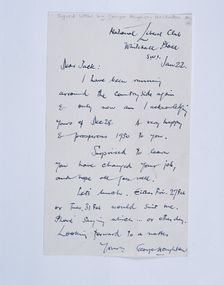 National Liberal Club
Whitehall Place
SW1, Jan 22.
Dear Jack:
I have been running
around the countryside again
& only now am I acknowledging
yours of Dec 28. A very happy
& prosperous 1950 to you.
Surprised to learn
you have changed your job,
and hope all goes well!
Let's lunch. Either Fri. 27 Feb
or Tues 31 Feb would suit me.
Phone saying which ... or other day.
Looking forward to a natter
Yours, George Houghton